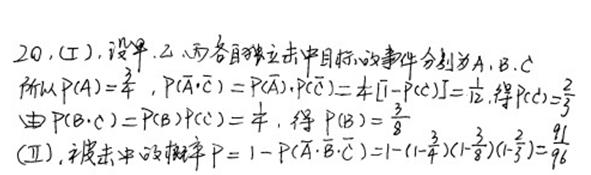 20.(I).设甲.乙.丙各自独立击中目标的事件分别为A.B.C
所以P(A)=3/4,P(Ā·C̄)=P(Ā)·P(C̄)=1/4[1-P(C)]=1/12,得P(C)=2/3
由P(B·C)=P(B)P(C)=1/4,得P(B)=3/8
(II).被击中的概率P=1-P(Ā·B̄·C̄)=1-(1-3/4)(1-3/8)(1-2/3)=91/96